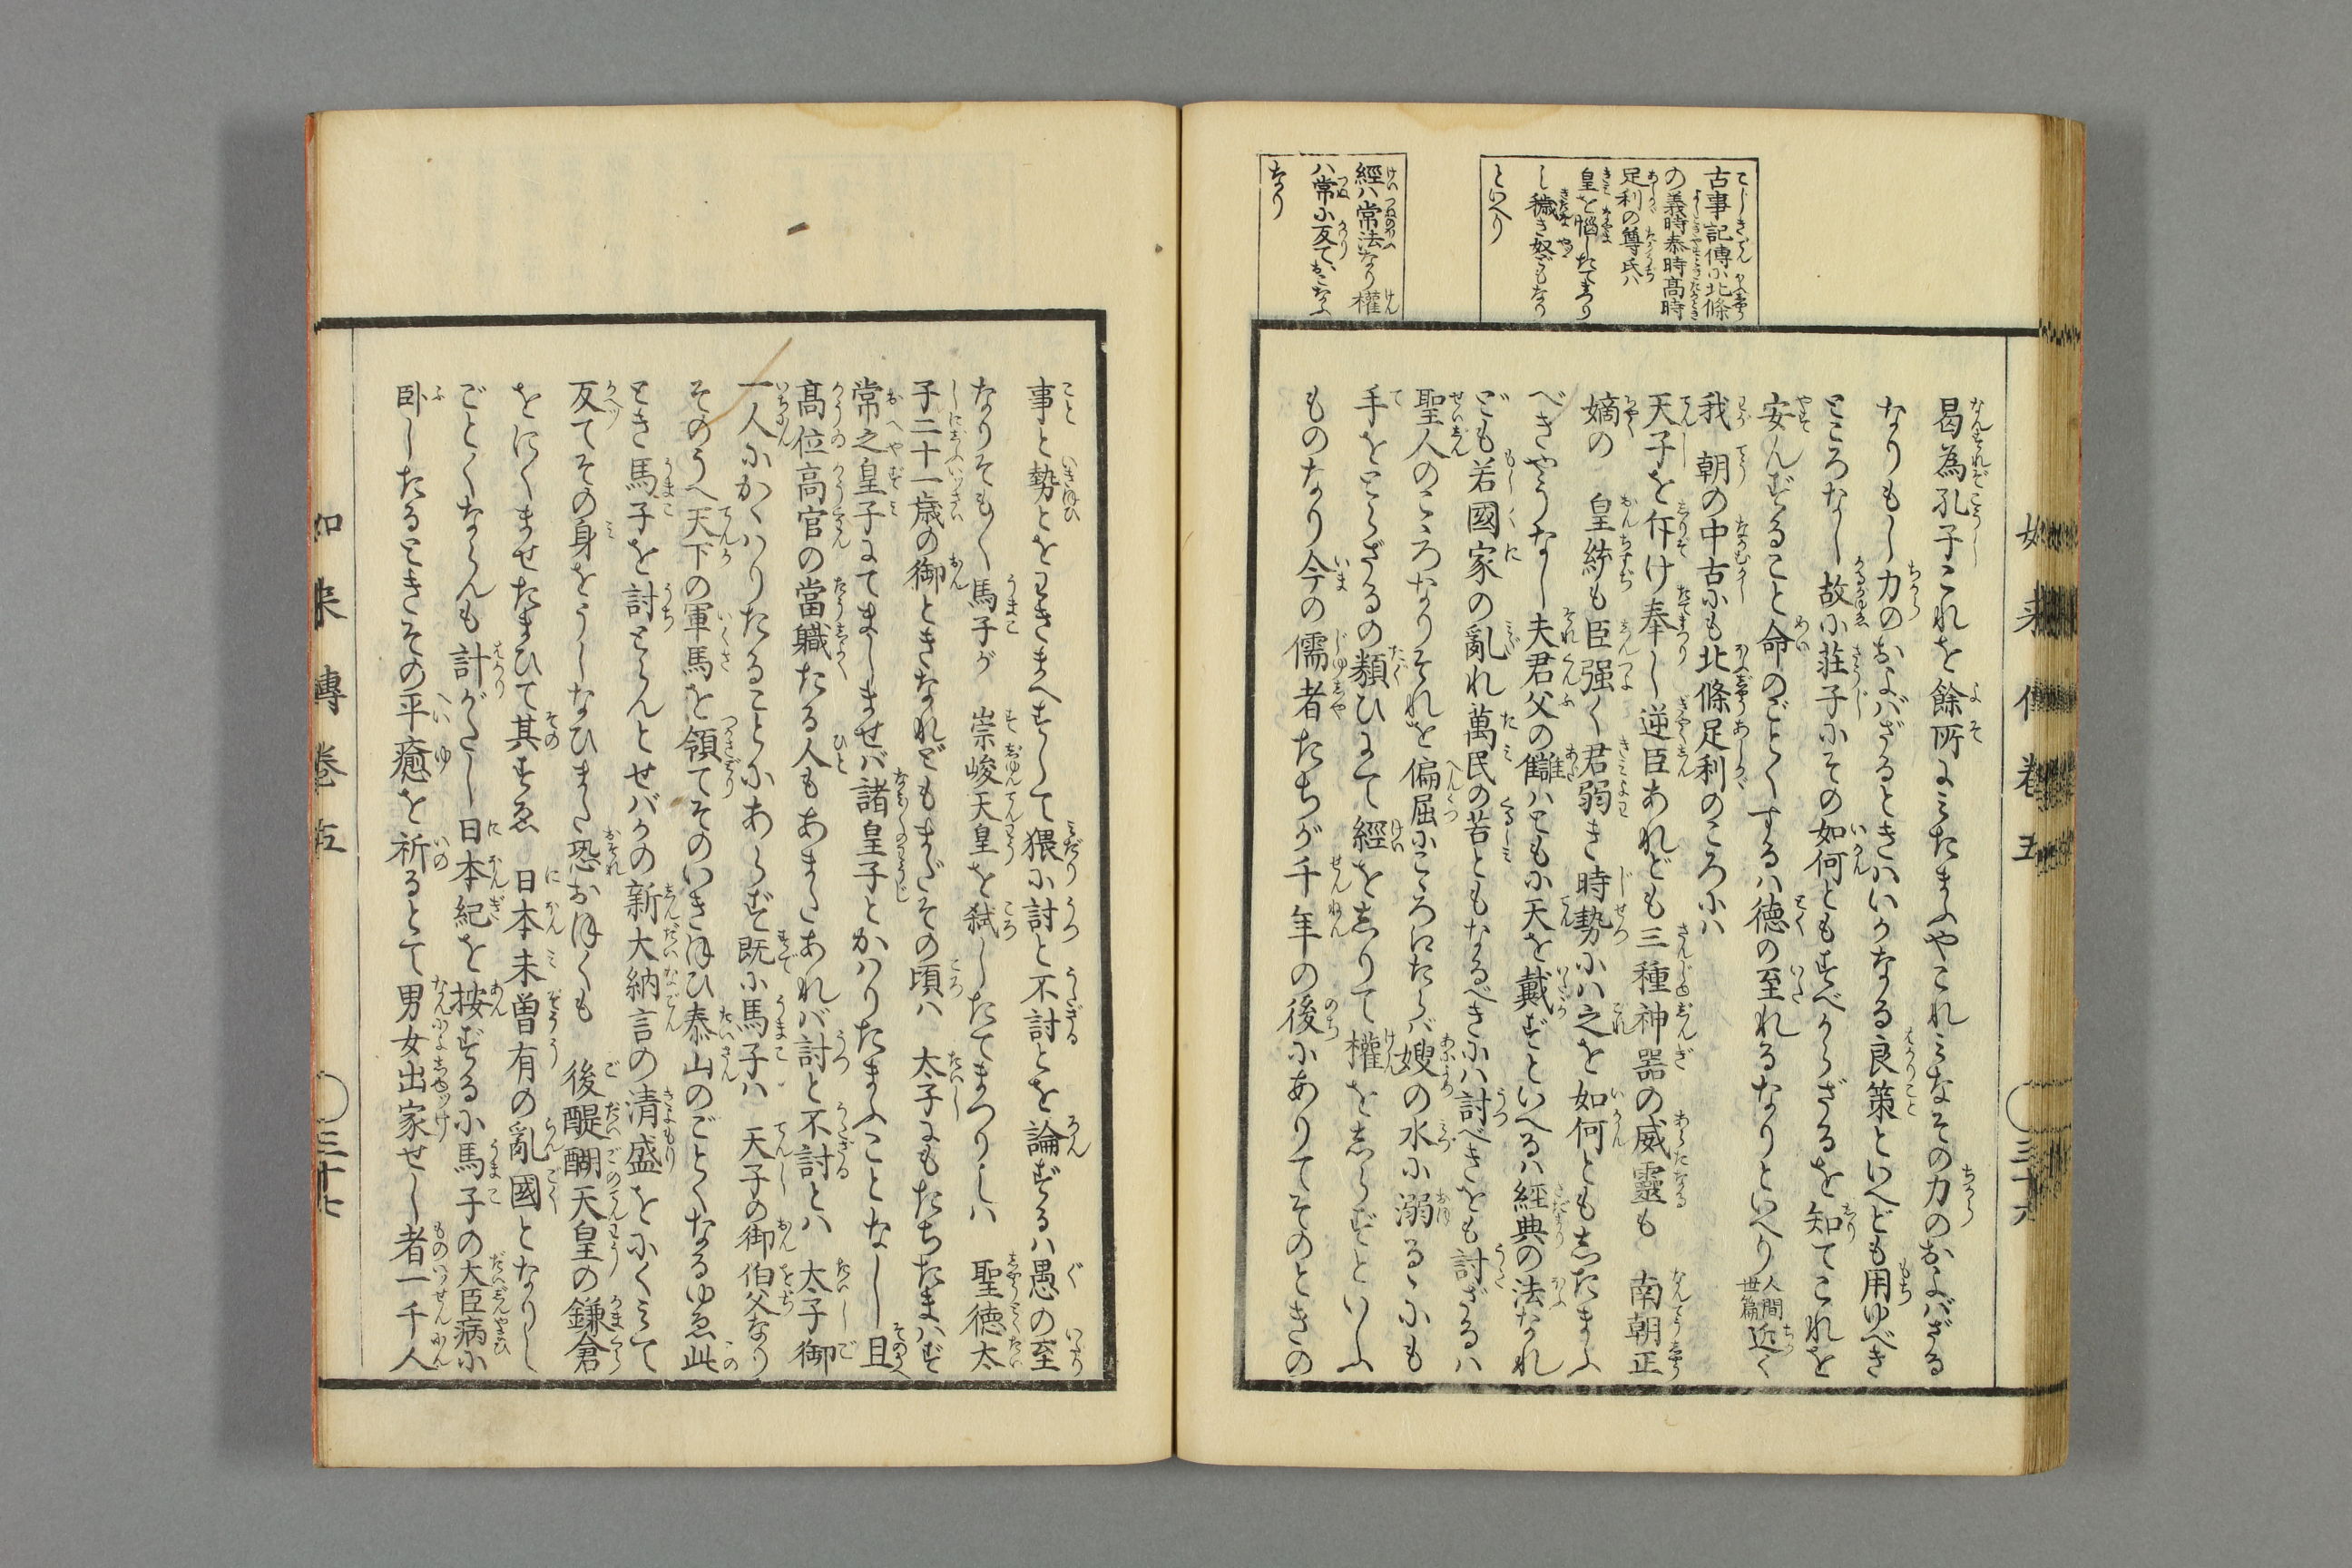 古事記傳小北條
の義時泰時高時
足利の尊氏ハ
皇を惱したてまつり
し穢き奴どもなり
といへり
經ハ常法なり權
ハ常小反ておこなふ
なり
曷為孔子これを餘所にみたまふやこれみなその力のおよバざる
なりもし力のおよバざるときハいかなる良策といへども用ゆべき
ところなし故小荘子小その如何ともすべからざるを知てこれを
安んずること命のごとくするハ徳の至れるなりといへり人間世篇近く
我 朝の中古小も北條足利のころ小ハ
天子を斥け奉し逆臣あれども三種神器の威靈も 南朝正
嫡の 皇統も臣强く君弱き時勢小ハ之を如何とも志たまふ
べきやうなし夫君父の讎ハともに天を戴ずといへるハ經典の法なれ
ども若國家の亂れ萬民の苦ともなるべき小ハ討べきをも討ざるハ
聖人のこゝろなりそれを偏屈小こゝろにたらバ嫂の水小溺るゝ小も
手をとらざるの類ひにて經を志りて權を志らずといふ
ものなり今の儒者たちが千年の後小ありてそのときの
如来傳巻五 〇三十六
事と勢とをわきまへずして猥小討と不討とを論ずるハ愚の至
なりそも〱馬子が 崇峻天皇を弑したてまつりしハ 聖徳太
子二十一歳の御ときなれどもまだその頃ハ 太子にもたちたまハず
常之皇子にてましませバ諸皇子とかハりたまふことなし且
高位高官の當職たる人もあまたあれバ討と不討とハ 太子御
一人小かゝハりたること小あらず既小馬子ハ 天子の御伯父なり
そのうへ天下の軍馬を領てそのいきほひ泰山のごとくなるゆゑ此
とき馬子を討とらんとせバかの新大納言の清盛を小くみて
反てその身をうしなひまた恐おほくも 後醍醐天皇の鎌倉
をにくませたまひて其すゑ 日本未曽有の亂國となりし
ごとくならんも計がたし日本紀を按ずる小馬子の大臣病小
臥したるときその平癒を祈るとて男女出家せし者一千人
如来傳巻五 〇三十七